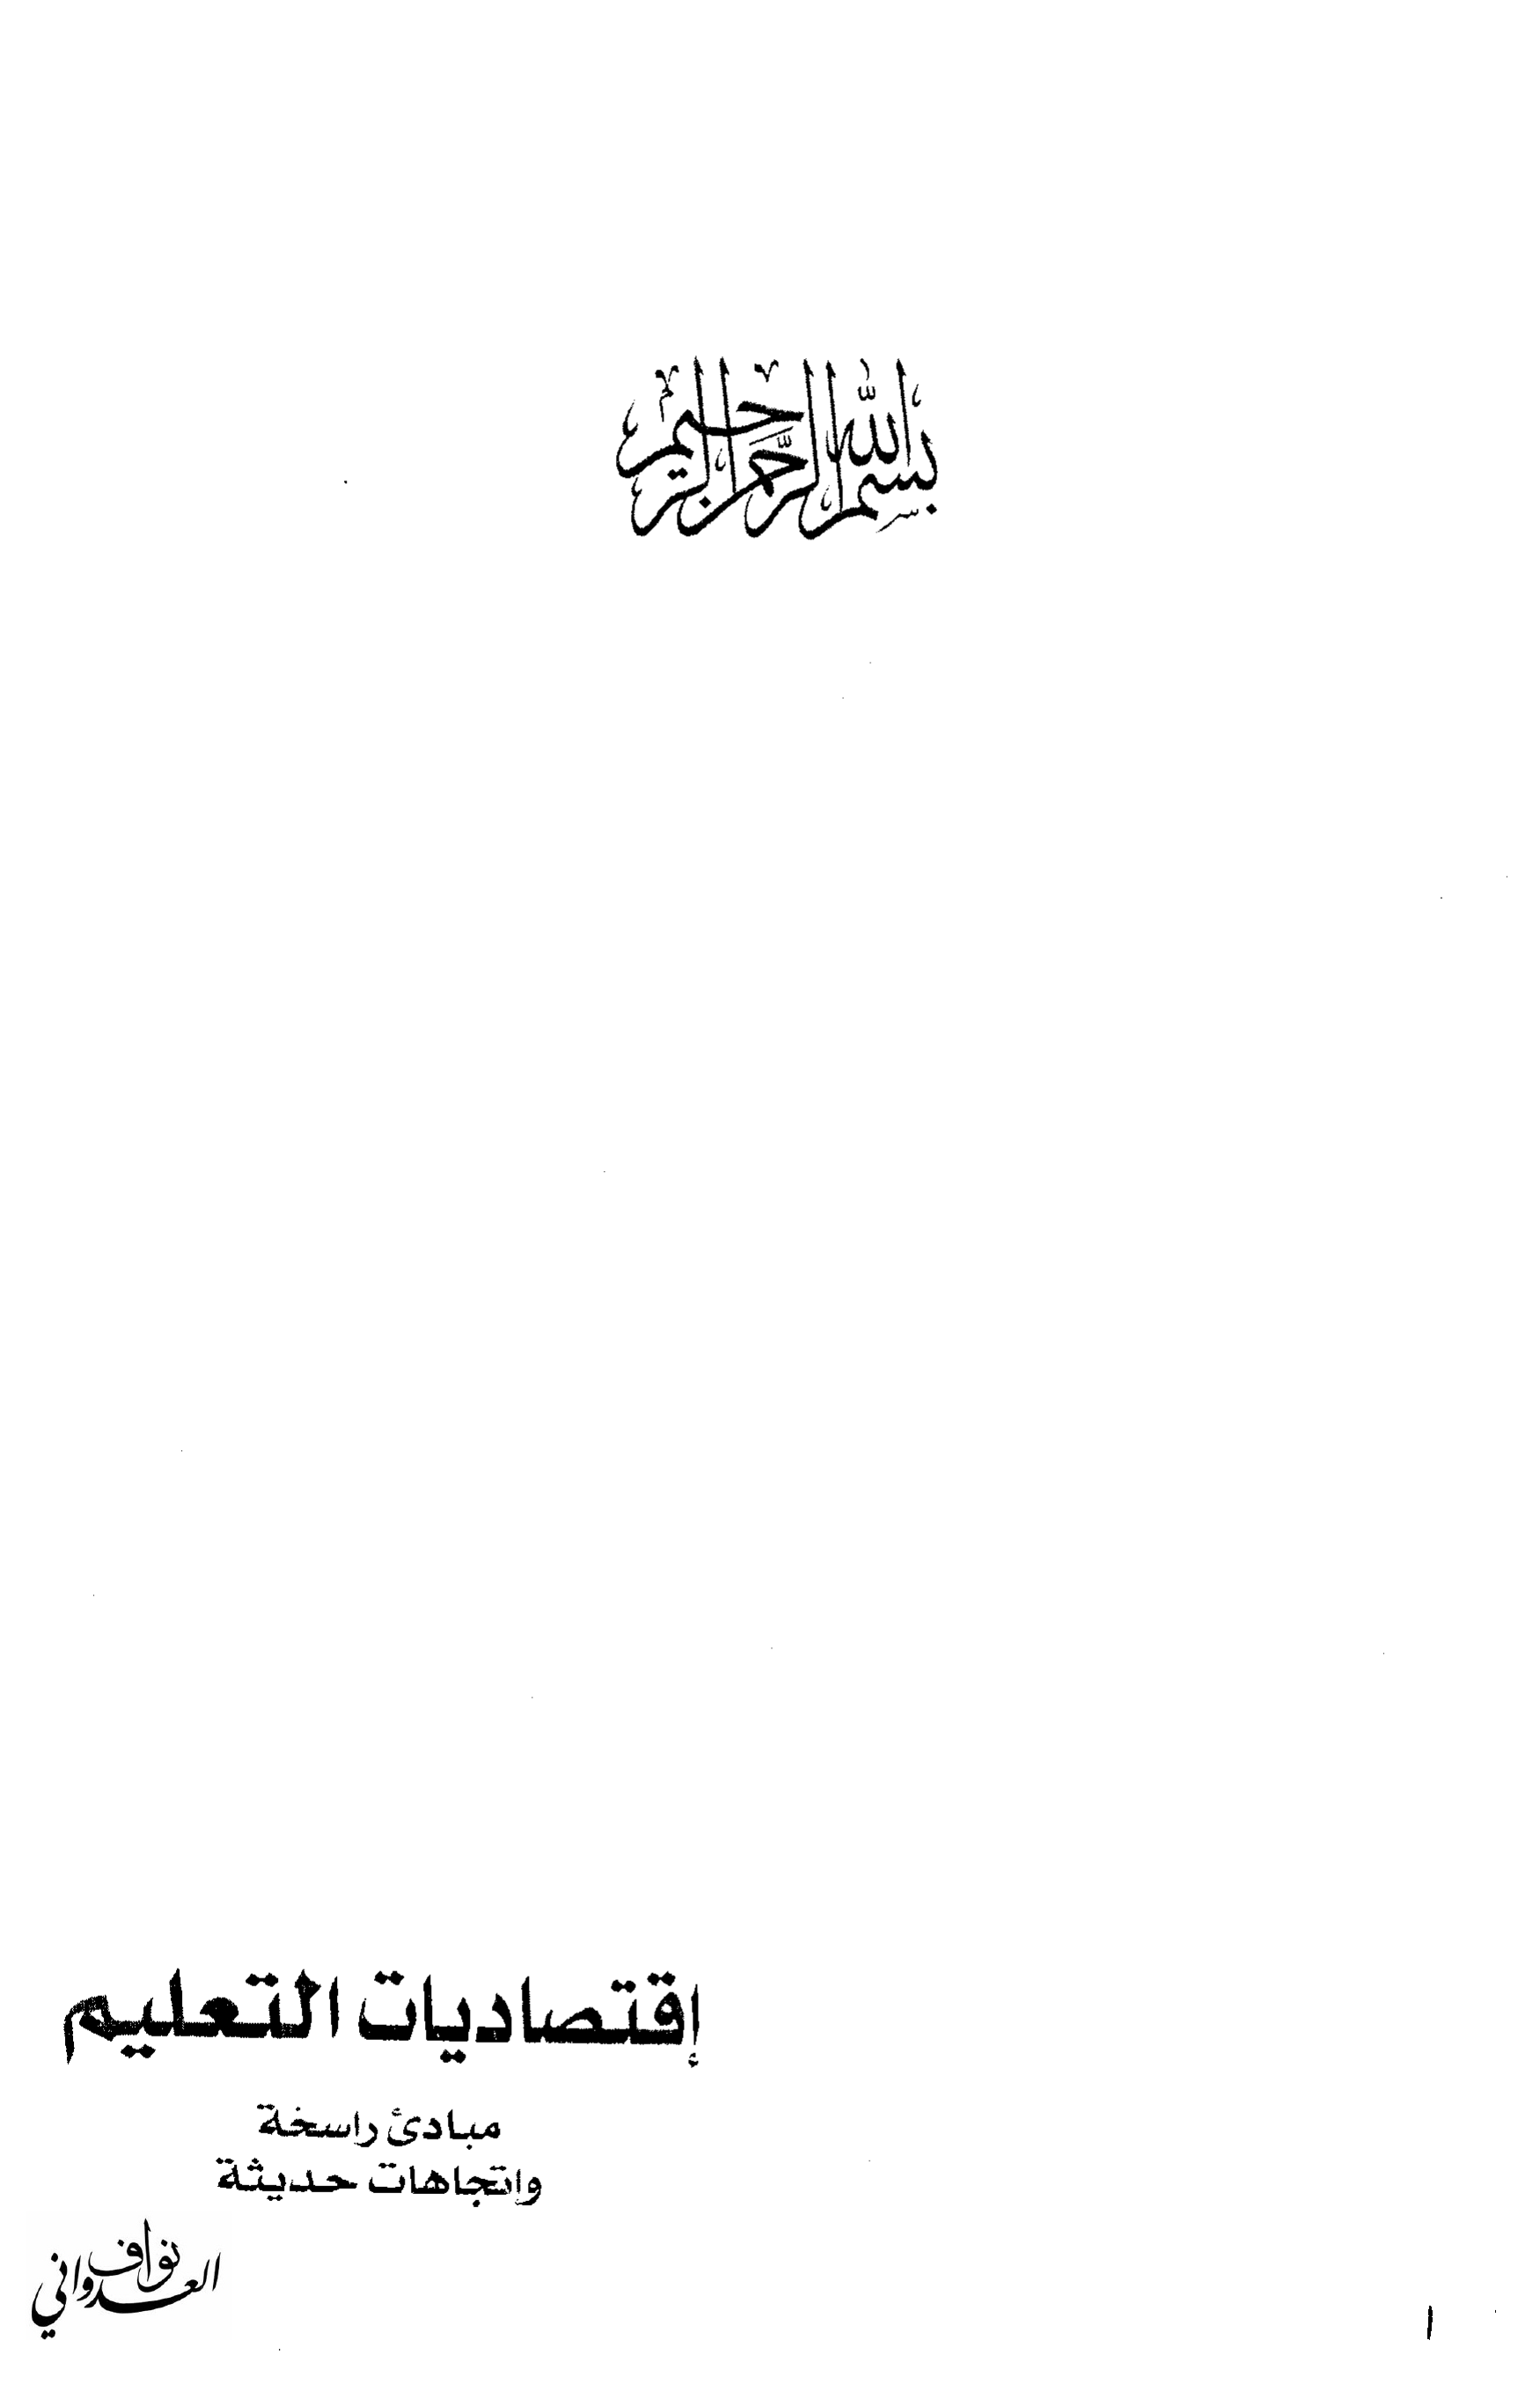 بسم الله الرحمن الرحيم
إقتصاديات التعليم
مبادئ راسخة
وإتجاهات حديثة
نواف العدواني
١